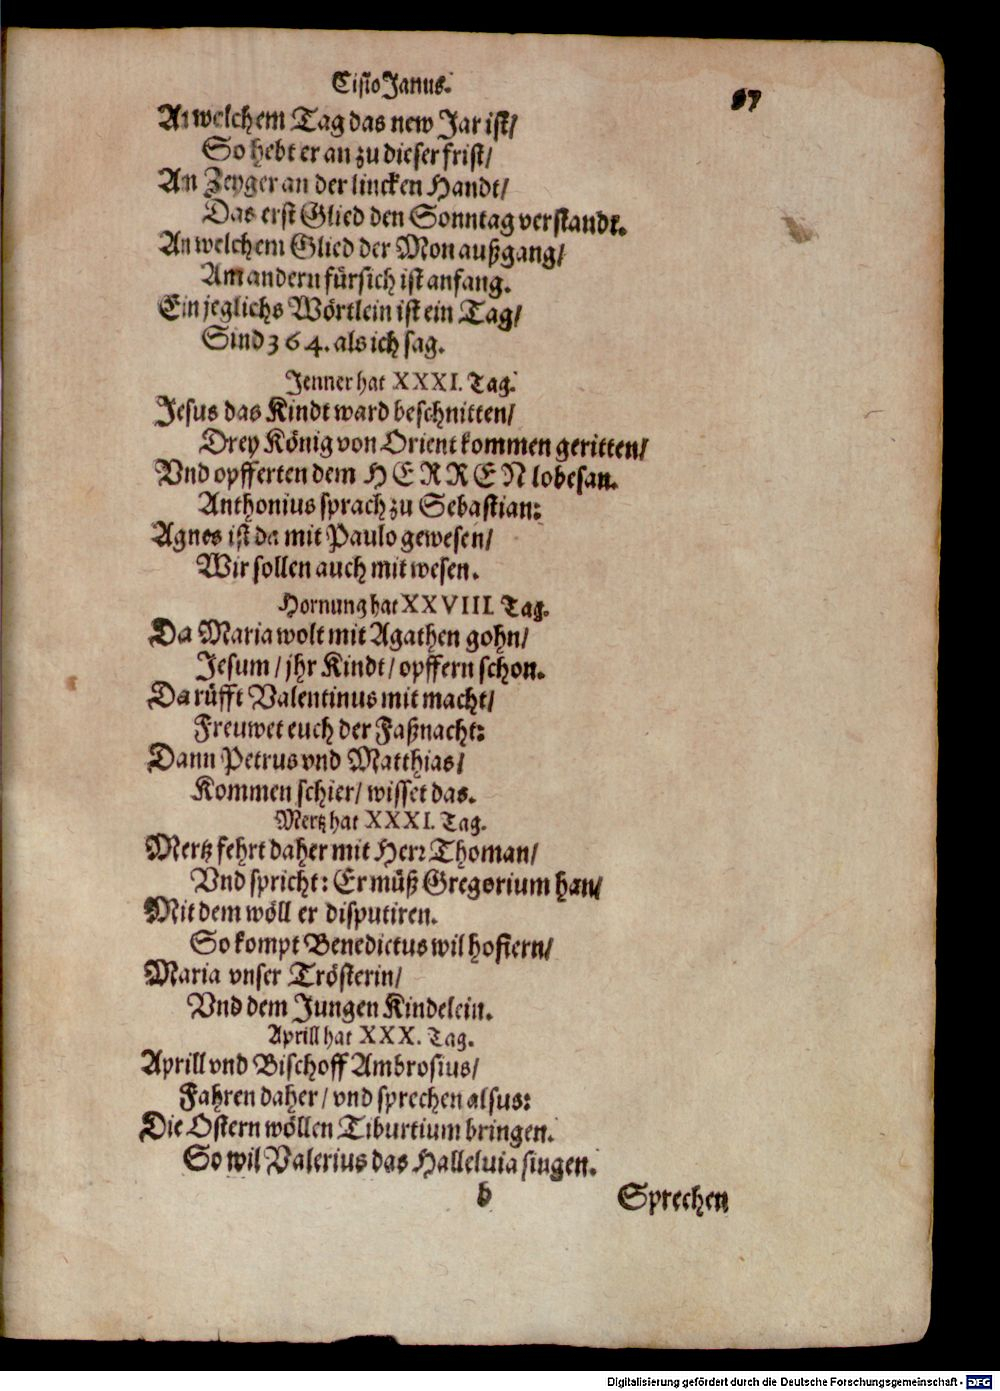 Cisio Janus.
97
An welchem Tag das new Jar ist/
So hebt er an zu dieser frist/
An Zeyger an der lincken Handt/
Das erst Glied den Sonntag verstandt.
An welchem Glied der Mon außgang/
Am andern fürsich ist anfang.
Ein jeglichs Wörtlein ist ein Tag/
Sind 364. als ich sag.
Jenner hat XXXI. Tag.
Jesus das Kindt ward beschnitten/
Drey König von Orient kommen geritten/
Vnd opfferten dem HERREN lobesan.
Anthonius sprach zu Sebastian:
Agnes ist da mit Paulo gewesen/
Wir sollen auch mit wesen.
Hornung hat XXVIII. Tag.
Da Maria wolt mit Agathen gohn/
Jesum / jhr Kindt / opffern schon.
Da rüfft Valentinus mit macht/
Freuwet euch der Faßnacht:
Dann Petrus vnd Matthias/
Kommen schier/ wisset das.
Mertz hat XXXI. Tag.
Mertz fehrt daher mit Herr Thoman/
Vnd spricht: Er müß Gregorium han/
Mit dem wöll er disputiren.
So kompt Benedictus wil hofiern/
Maria vnser Trösterin/
Vnd dem Jungen Kindelein.
Aprill hat XXX. Tag.
Aprill vnd Bischoff Ambrosius/
Fahren daher / vnd sprechen alsus:
Die Ostern wöllen Tiburtium bringen.
So wil Valerius das Halleluia singen.
b
Sprechen
Digitalisierung gefördert durch die Deutsche Forschungsgemeinschaft - DFG